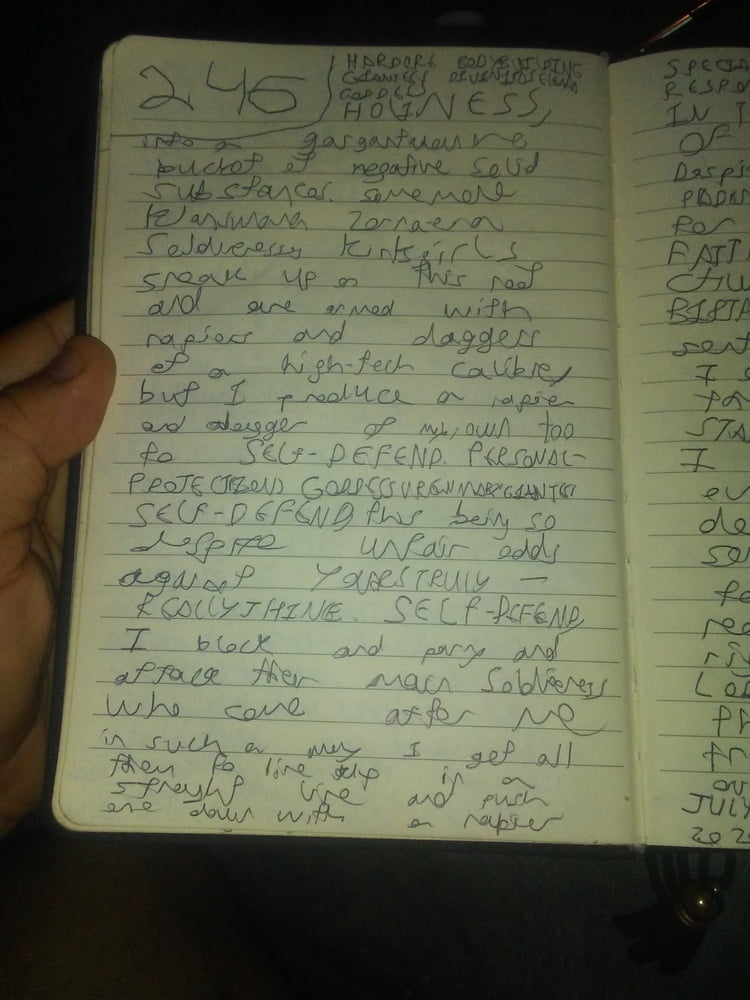 246
HARDORE BODYBUILDING
GODDESS
HOLINESS,
into a gargantuan
bucket of negative solid
substances. some more
Soldieress kinkgirls
sneak up on this roof
and are armed with
rapiers and daggers
of a high-tech calibre,
but I produce a rapier
and dagger of my own too
to SELF-DEFEND. PERSONAL-
SELF-DEFEND this being so
despite unfair odds
against YOURSTRULY —
REALLYTHINE. SELF-DEFEND,
I block and parry and
attack their main Soldieress
who come after me
in such a way I get all
them to line up in a
straight line and push
one down with a rapier
SPECIA
RESPO
IN T
OF
Despi
for
FAIT
sent
I
for
STA
I
ev
de
sen
fe
rea
ri
Lo
fr
on
JULY
202